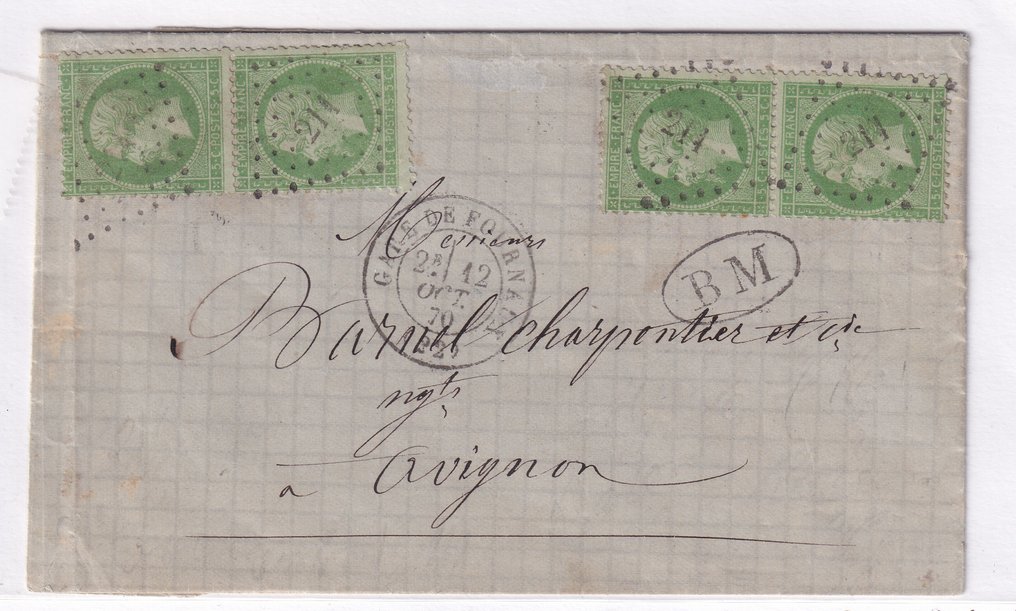 EMPIRE FRANC.
POSTES
5 C
EMPIRE FRANC.
POSTES
5 C
211
EMPIRE FRANC.
POSTES
5 C
211
EMPIRE FRANC.
POSTES
5 C
211
GARE DE
2E 12
OCT.
70
BM
Messieurs
charpentier et cie
ngts
à Avignon